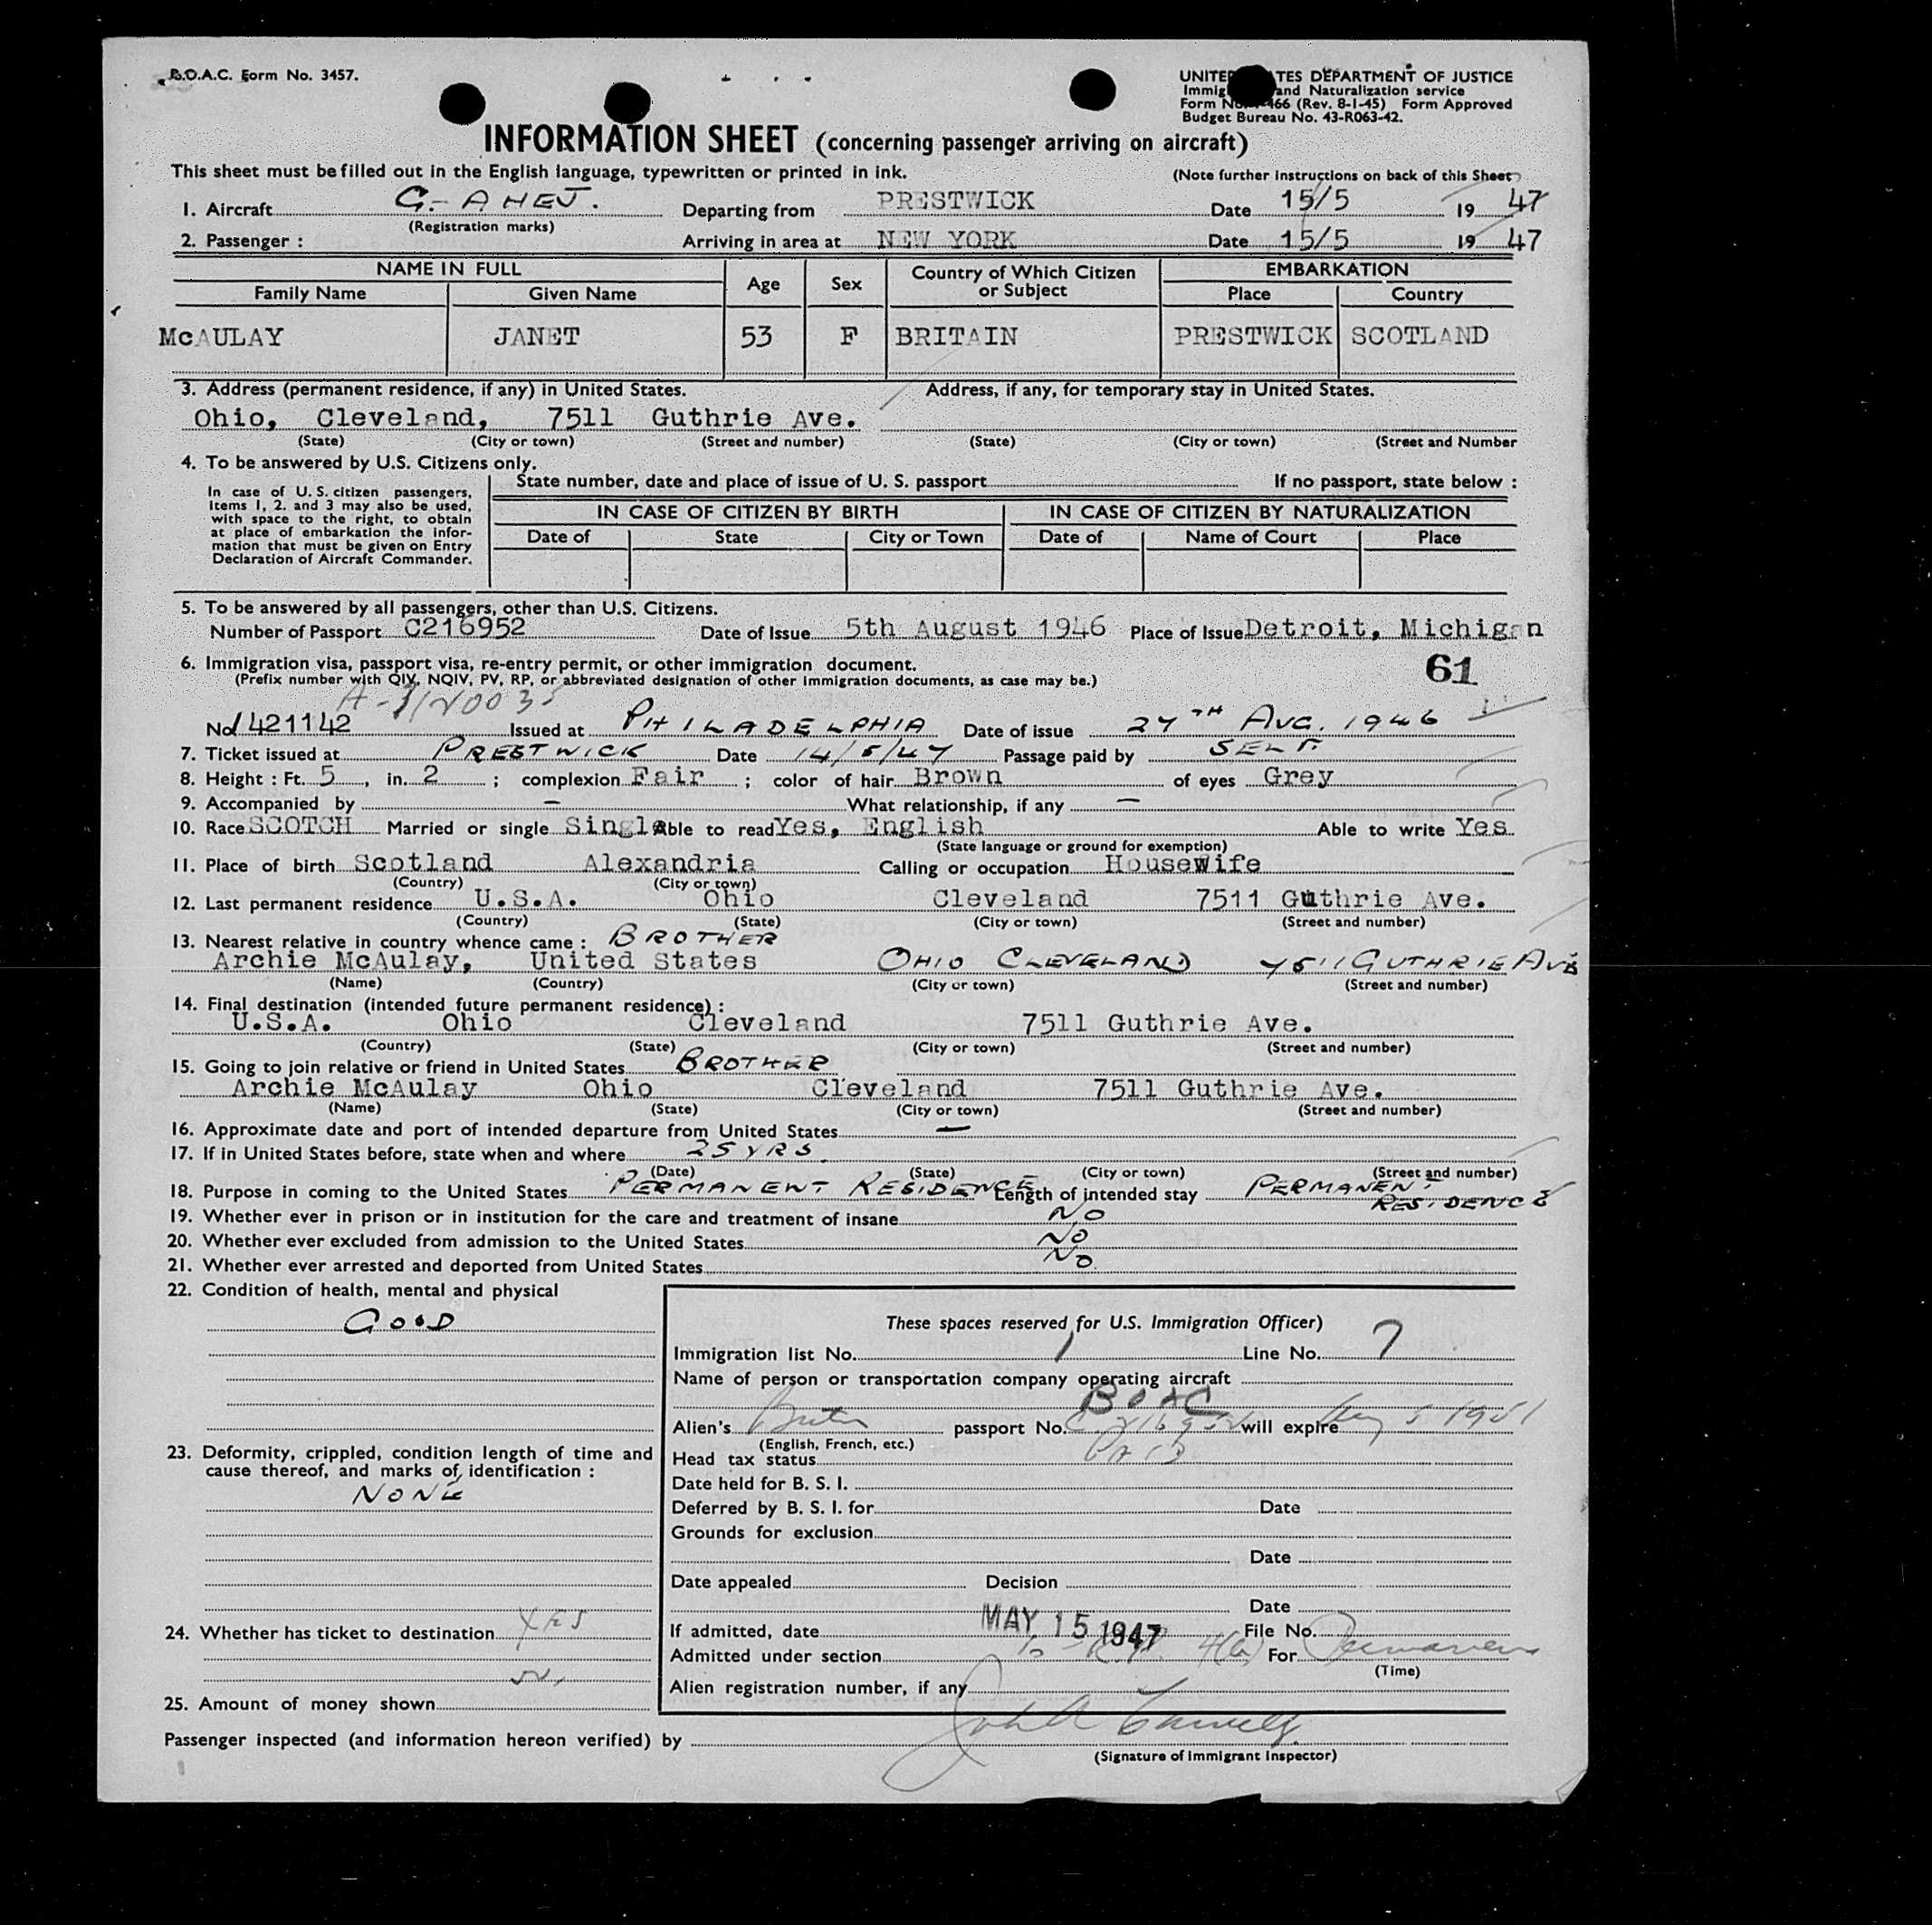 B.O.A.C. Form No. 3457.
UNITED STATES DEPARTMENT OF JUSTICE
Immig and Naturalization service
Form No. 466 (Rev. 8-1-45) Form Approved
Budget Bureau No. 43-R063-42.
INFORMATION SHEET (concerning passenger arriving on aircraft)
This sheet must be filled out in the English language, typewritten or printed in ink. (Note further instructions on back of this Sheet
1. Aircraft G-AHEJ. Departing from PRESTWICK Date 15/5 19 47
(Registration marks)
2. Passenger : Arriving in area at NEW YORK Date 15/5 19 47
NAME IN FULL Age Sex Country of Which Citizen or Subject EMBARKATION
Family Name Given Name Place Country
McAULAY JANET 53 F BRITAIN PRESTWICK SCOTLAND
3. Address (permanent residence, if any) in United States. Address, if any, for temporary stay in United States.
Ohio, Cleveland, 7511 Guthrie Ave.
(State) (City or town) (Street and number) (State) (City or town) (Street and Number
4. To be answered by U.S. Citizens only.
State number, date and place of issue of U. S. passport If no passport, state below :
In case of U. S. citizen passengers,
items 1, 2. and 3 may also be used,
with space to the right, to obtain
at place of embarkation the infor-
mation that must be given on Entry
Declaration of Aircraft Commander.
IN CASE OF CITIZEN BY BIRTH IN CASE OF CITIZEN BY NATURALIZATION
Date of State City or Town Date of Name of Court Place
5. To be answered by all passengers, other than U.S. Citizens.
Number of Passport C216952 Date of Issue 5th August 1946 Place of Issue Detroit, Michigan
6. Immigration visa, passport visa, re-entry permit, or other immigration document. 61
(Prefix number with QIV, NQIV, PV, RP, or abbreviated designation of other immigration documents, as case may be.)
No 1421142 Issued at PHILADELPHIA Date of issue 27TH AUG. 1946
7. Ticket issued at PRESTWICK Date 14/5/47 Passage paid by SELF
8. Height : Ft. 5, in. 2 ; complexion Fair ; color of hair Brown of eyes Grey
9. Accompanied by — What relationship, if any —
10. Race SCOTCH Married or single Single Able to read Yes, English Able to write Yes
(State language or ground for exemption)
11. Place of birth Scotland Alexandria Calling or occupation Housewife
(Country) (City or town)
12. Last permanent residence U.S.A. Ohio Cleveland 7511 Guthrie Ave.
(Country) (State) (City or town) (Street and number)
13. Nearest relative in country whence came : BROTHER
Archie McAulay, United States OHIO CLEVELAND 7511 GUTHRIE AVE
(Name) (Country) (City or town) (Street and number)
14. Final destination (intended future permanent residence) :
U.S.A. Ohio Cleveland 7511 Guthrie Ave.
(Country) (State) (City or town) (Street and number)
15. Going to join relative or friend in United States BROTHER
Archie McAulay Ohio Cleveland 7511 Guthrie Ave.
(Name) (State) (City or town) (Street and number)
16. Approximate date and port of intended departure from United States —
17. If in United States before, state when and where 25 YRS.
(Date) (State) (City or town) (Street and number)
18. Purpose in coming to the United States PERMANENT RESIDENCE Length of intended stay PERMANENT RESIDENCE
19. Whether ever in prison or in institution for the care and treatment of insane NO
20. Whether ever excluded from admission to the United States NO
21. Whether ever arrested and deported from United States NO
22. Condition of health, mental and physical
GOOD
23. Deformity, crippled, condition length of time and
cause thereof, and marks of identification :
NONE
24. Whether has ticket to destination YES
25. Amount of money shown
These spaces reserved for U.S. Immigration Officer)
Immigration list No. 1 Line No. 7
Name of person or transportation company operating aircraft
BOAC
Alien's passport No. C 216952 will expire Aug 5 1951
(English, French, etc.)
Head tax status
Date held for B. S. I.
Deferred by B. S. I. for Date
Grounds for exclusion
Date
Date appealed Decision
Date
If admitted, date MAY 15 1947 File No.
Admitted under section 4(b) For Permanent
(Time)
Alien registration number, if any
Passenger inspected (and information hereon verified) by
(Signature of Immigrant Inspector)